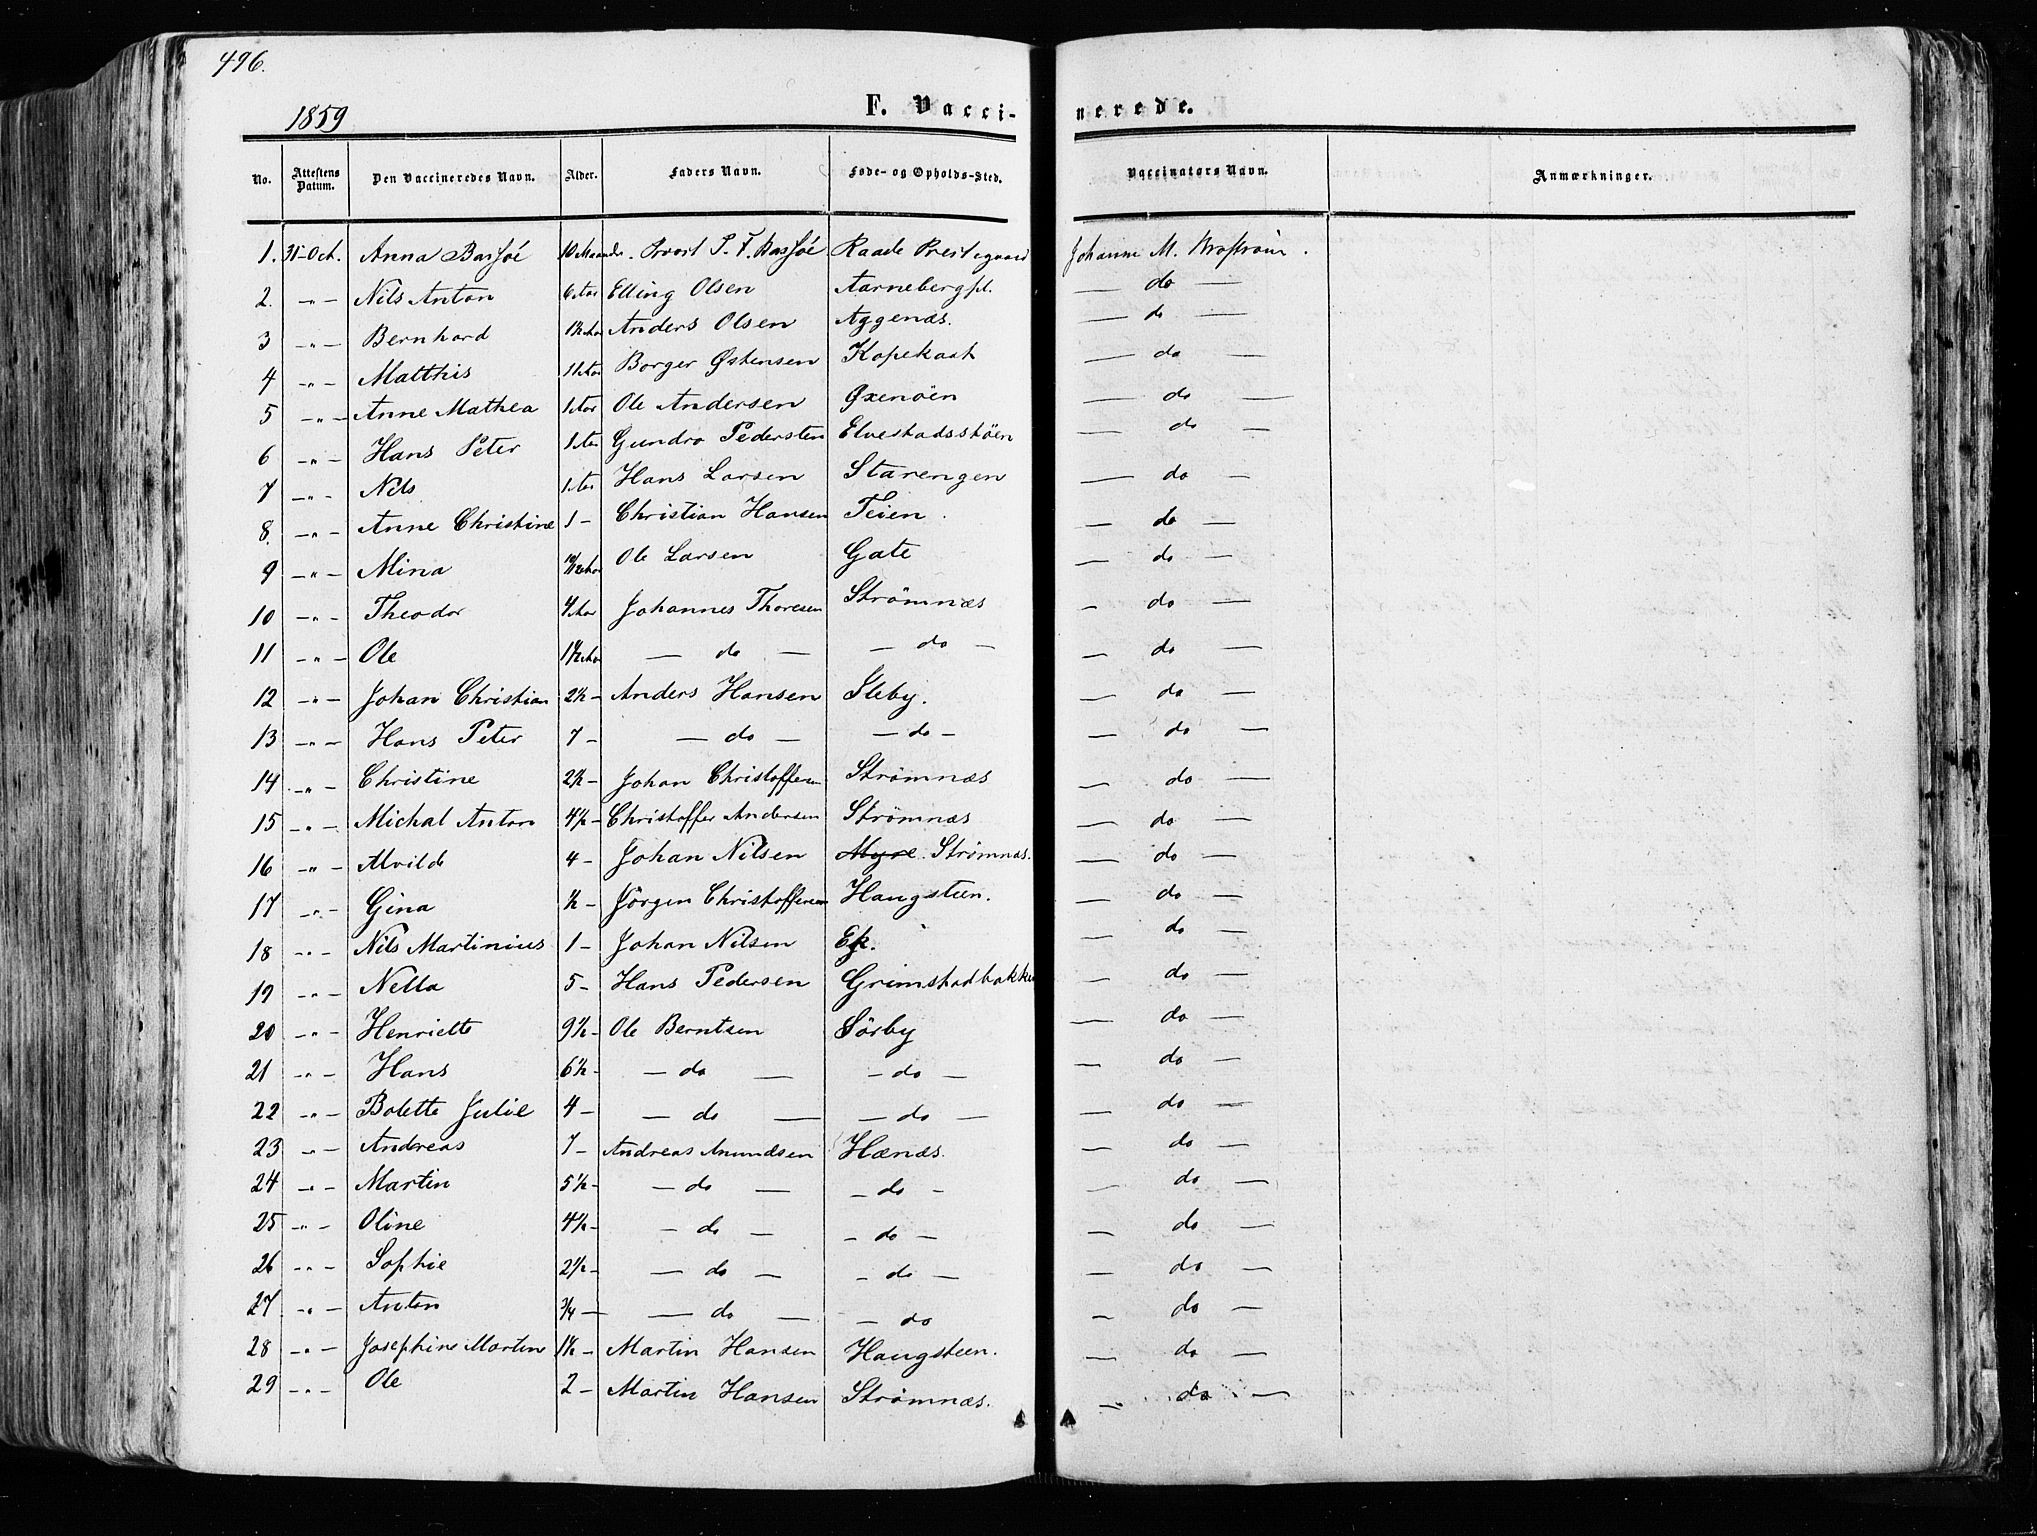 496.
1859
F. Vaccinerede.
No. Attestens Datum. Den Vaccineredes Navn. Alder. Faders Navn. Føde- og Opholds-Sted. Vaccinators Navn. Anmærkninger.
1. 31-Oct. Anna Bassøe 10 Maaneder. Provst P. F. Bassøe Raade Prestegaard Johanne M.
2. -"- Nils Anton 6 Aar Elling Olsen Aarnebergpl. — do —
3 -"- Bernhard 1½ Aar Anders Olsen Aggenæs. — do —
4 -"- Matthis 11 Aar Borger Østensen Kopekast — do —
5 -"- Anne Mathea 1 Aar Ole Andersen Oxenöen — do —
6 -"- Hans Peter 1 Aar Gundro Pedersten Elvestadsstöen — do —
7 -"- Nils 1 Aar Hans Larsen Starengen — do —
8. -"- Anne Christine 1 - Christian Hansen Teien. — do —
9 -"- Mina Ole Larsen Gate — do —
10 -"- Theodor 4 Aar Johannes Thoresen Strömnæs — do —
11 -"- Ole 1½ Aar — do — — do — — do —
12 -"- Johan Christian 2½ - Anders Hansen Sleby. — do —
13 -"- Hans Peter 7 - — do — — do — — do —
14 -"- Christine 2½ - Johan Christoffersen Strømnæs — do —
15 -"- Michal Anton 4½ - Christoffer Andersen Strømnæs — do —
16 -"- Alvilde 4 - Johan Nilsen Myre. Strømnæs. — do —
17 -"- Gina ½ - Jörgen Christoffersen Haugsteen. — do —
18 -"- Nils Martinius 1 - Johan Nilsen Ek. — do —
19 -"- Nella 5 - Hans Pedersen Grimstadbakken — do —
20 -"- Henriette 9½ - Ole Berntsen Sörby — do —
21 -"- Hans 6½ - — do — — do — — do —
22 -"- Bolette Julie 4 - — do — — do — — do —
23 -"- Andreas 7 - Andreas Amundsen Hænæs. — do —
24 -"- Martin 5½ - — do — — do — — do —
25 -"- Oline 4½ - — do — — do — — do —
26 -"- Sophie 2½ - — do — — do — — do —
27 -"- Anton ¾ — — do — — do — do —
28 -"- Josephine Martine 1½ - Martin Hansen Haugsteen. — do —
29 -"- Ole 2 - Martin Hansen Strømnæs. — do —